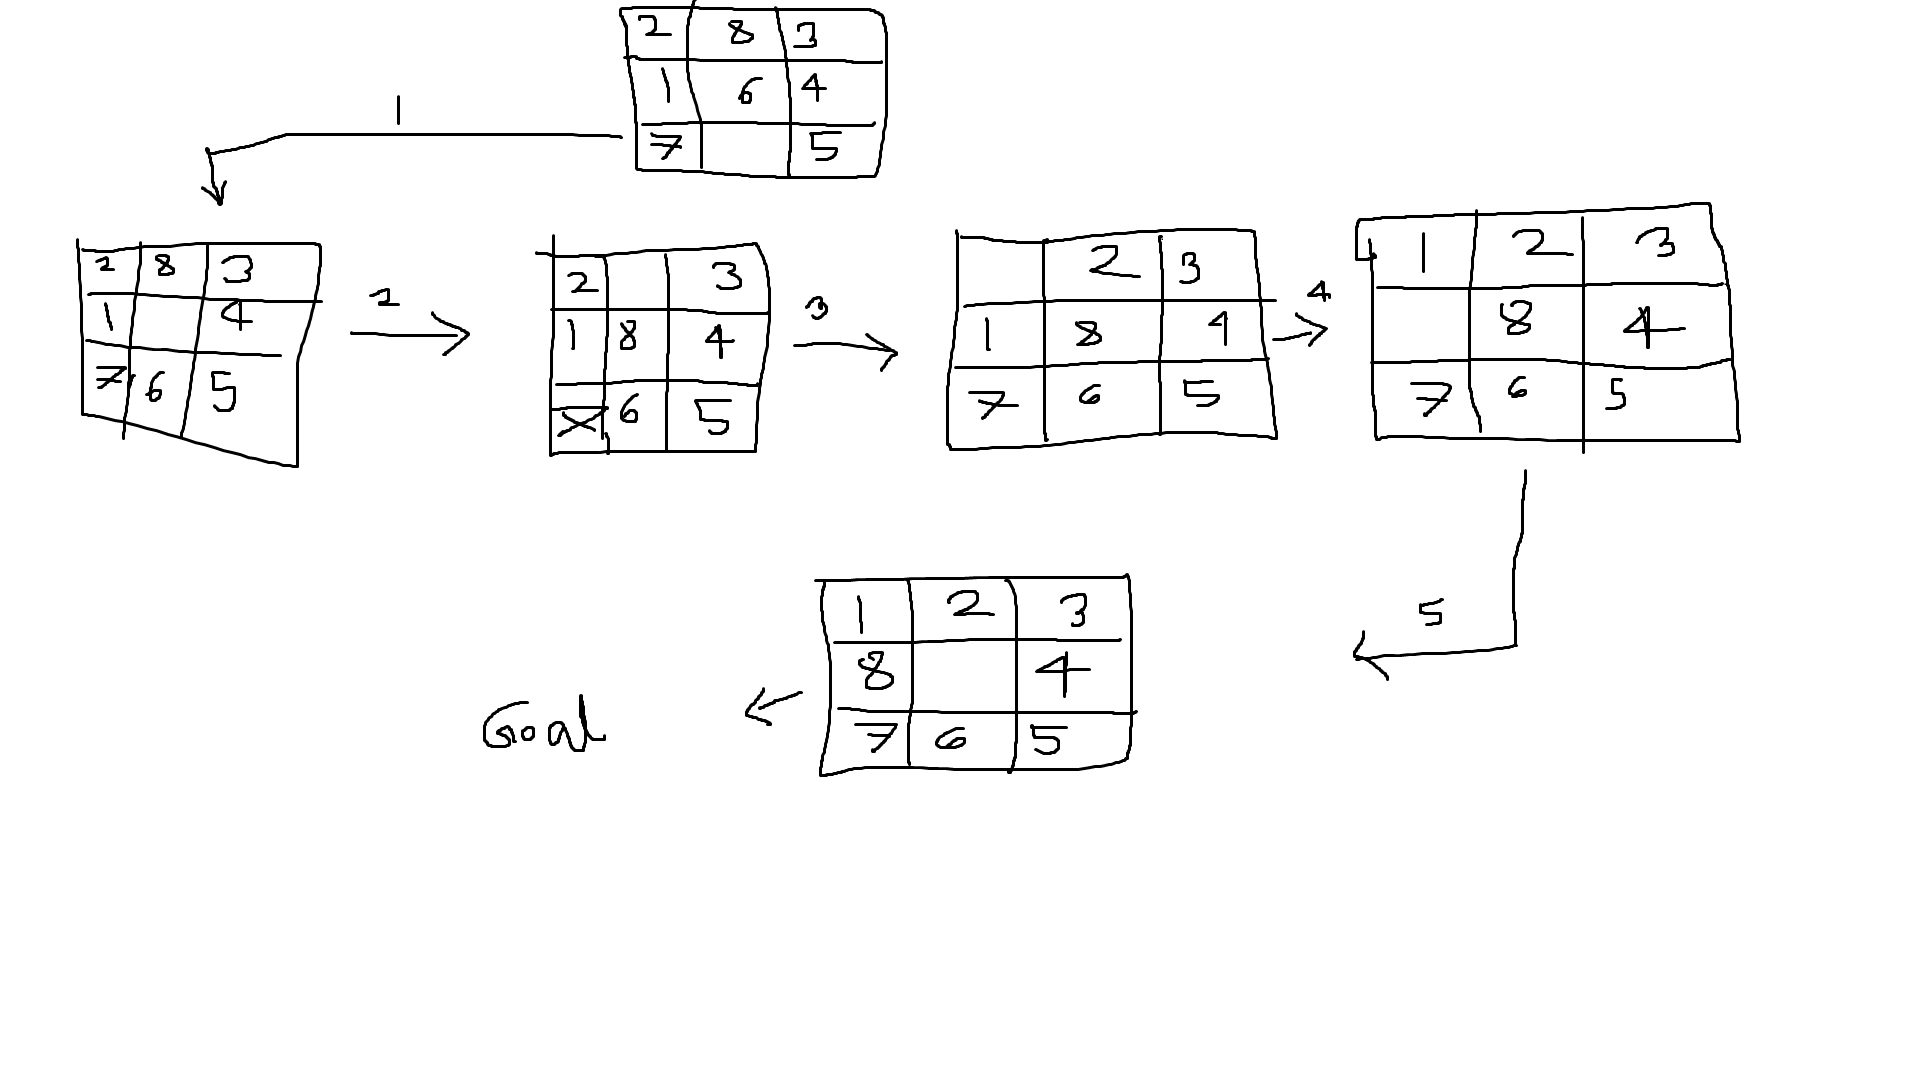 2 8 3
1 6 4
7 5
1
2 8 3
1 4
7 6 5
2
2 3
1 8 4
7 6 5
3
2 3
1 8 4
7 6 5
4
1 2 3
8 4
7 6 5
5
1 2 3
8 4
7 6 5
Goal